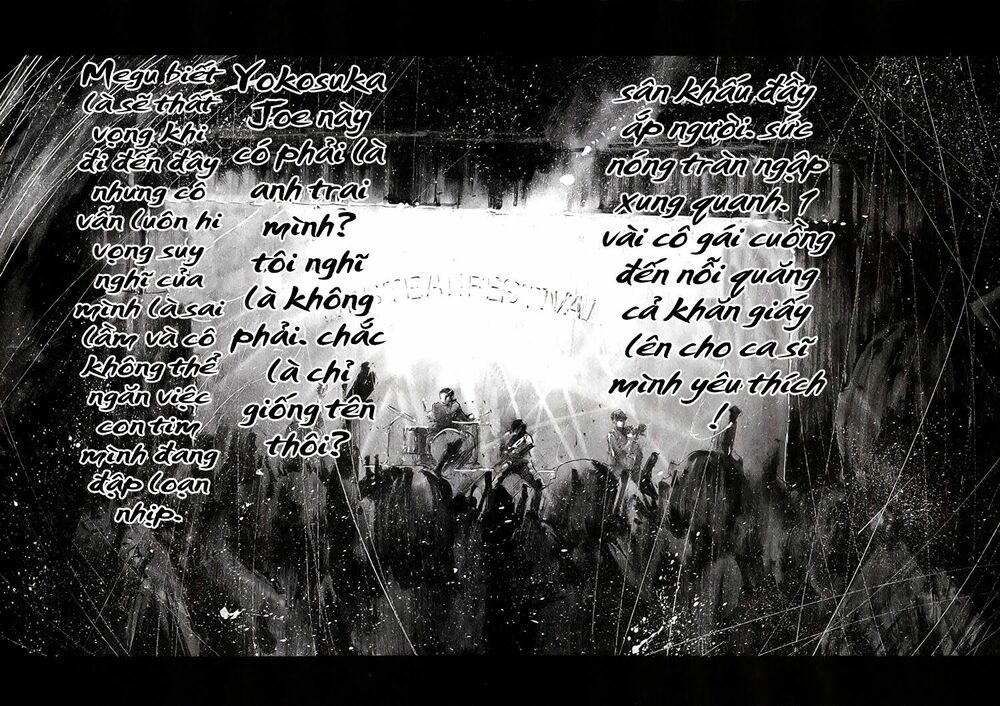 sân khấu đầy
ắp người. sức
nóng tràn ngập
xung quanh. 1
vài cô gái cuồng
đến nỗi quăng
cả khăn giấy
lên cho ca sĩ
mình yêu thích
!
Yokosuka
Joe này
có phải là
anh trai
mình?
tôi nghĩ
là không
phải. chắc
là chỉ
giống tên
thôi?
Megu biết
là sẽ thất
vọng khi
đi đến đây
nhưng cô
vẫn luôn hi
vọng suy
nghĩ của
mình là sai
lầm và cô
không thể
ngăn việc
con tim
mình đang
đập loạn
nhịp.
FESTIVAL